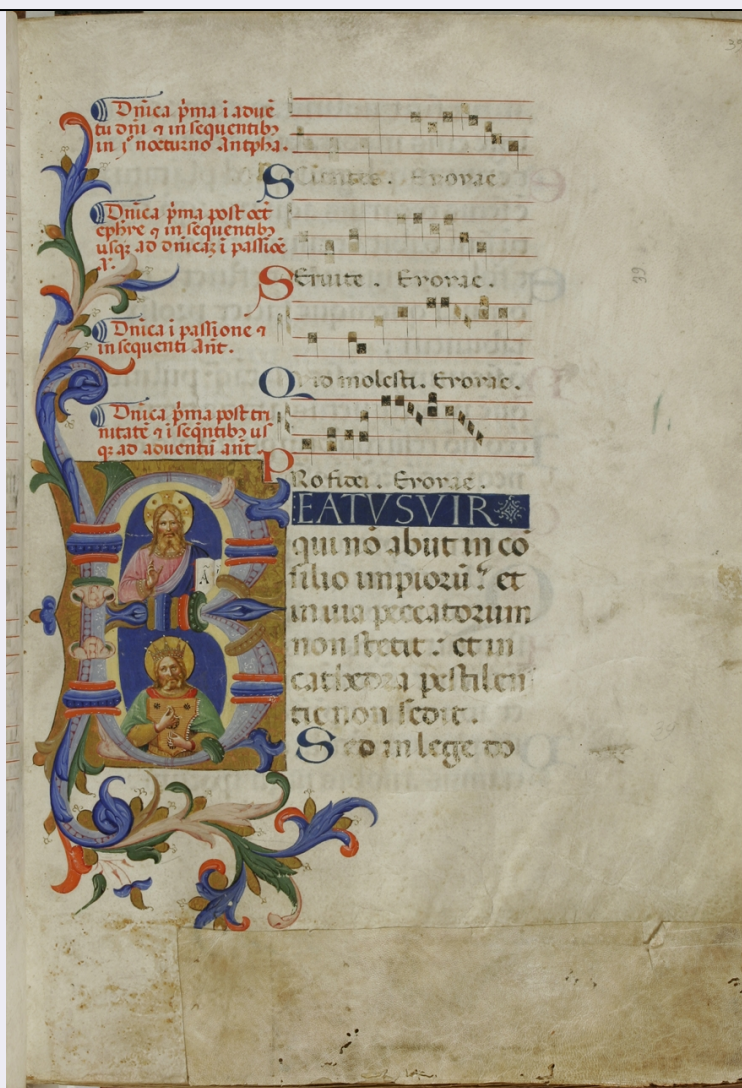 Dñica p̃ma ĩ adue
tu dñi ⁊ in sequentibꝫ
in jº nocturno Antpha.
Scientes. Evovae
Dñica p̃ma post oct
ephỹe ⁊ in sequentibꝫ
usqꝫ ad dñicaꝫ ĩ passiõe
a.
Seruite. Evovae.
Dñica ĩ passione ⁊
in sequenti Añt.
Quid molesti. Evovae.
Dñica p̃ma post tri
nitatẽ ⁊ ĩ seq̃ntibꝫ us
qꝫ ad aduentũ añt
Pro fidei. Evovae.
BEATVS VIR
qui nõ abijt in cõ
silio impiorũ : et
in uia peccatorum
non stetit : et in
cathedra pestilen
tie non sedit.
Sed in lege do
A
39